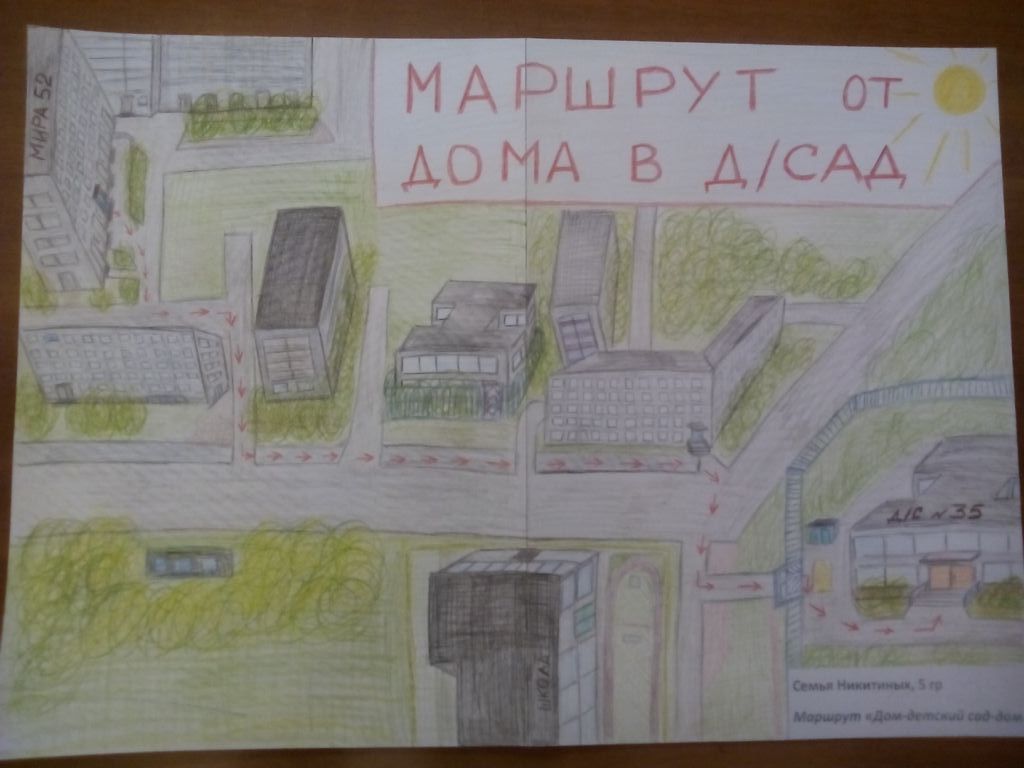 МИРА 52
МАРШРУТ ОТ
ДОМА В Д/САД
Д/С №35
Семья Никитиных, 5 гр
Маршрут «Дом-детский сад-дом